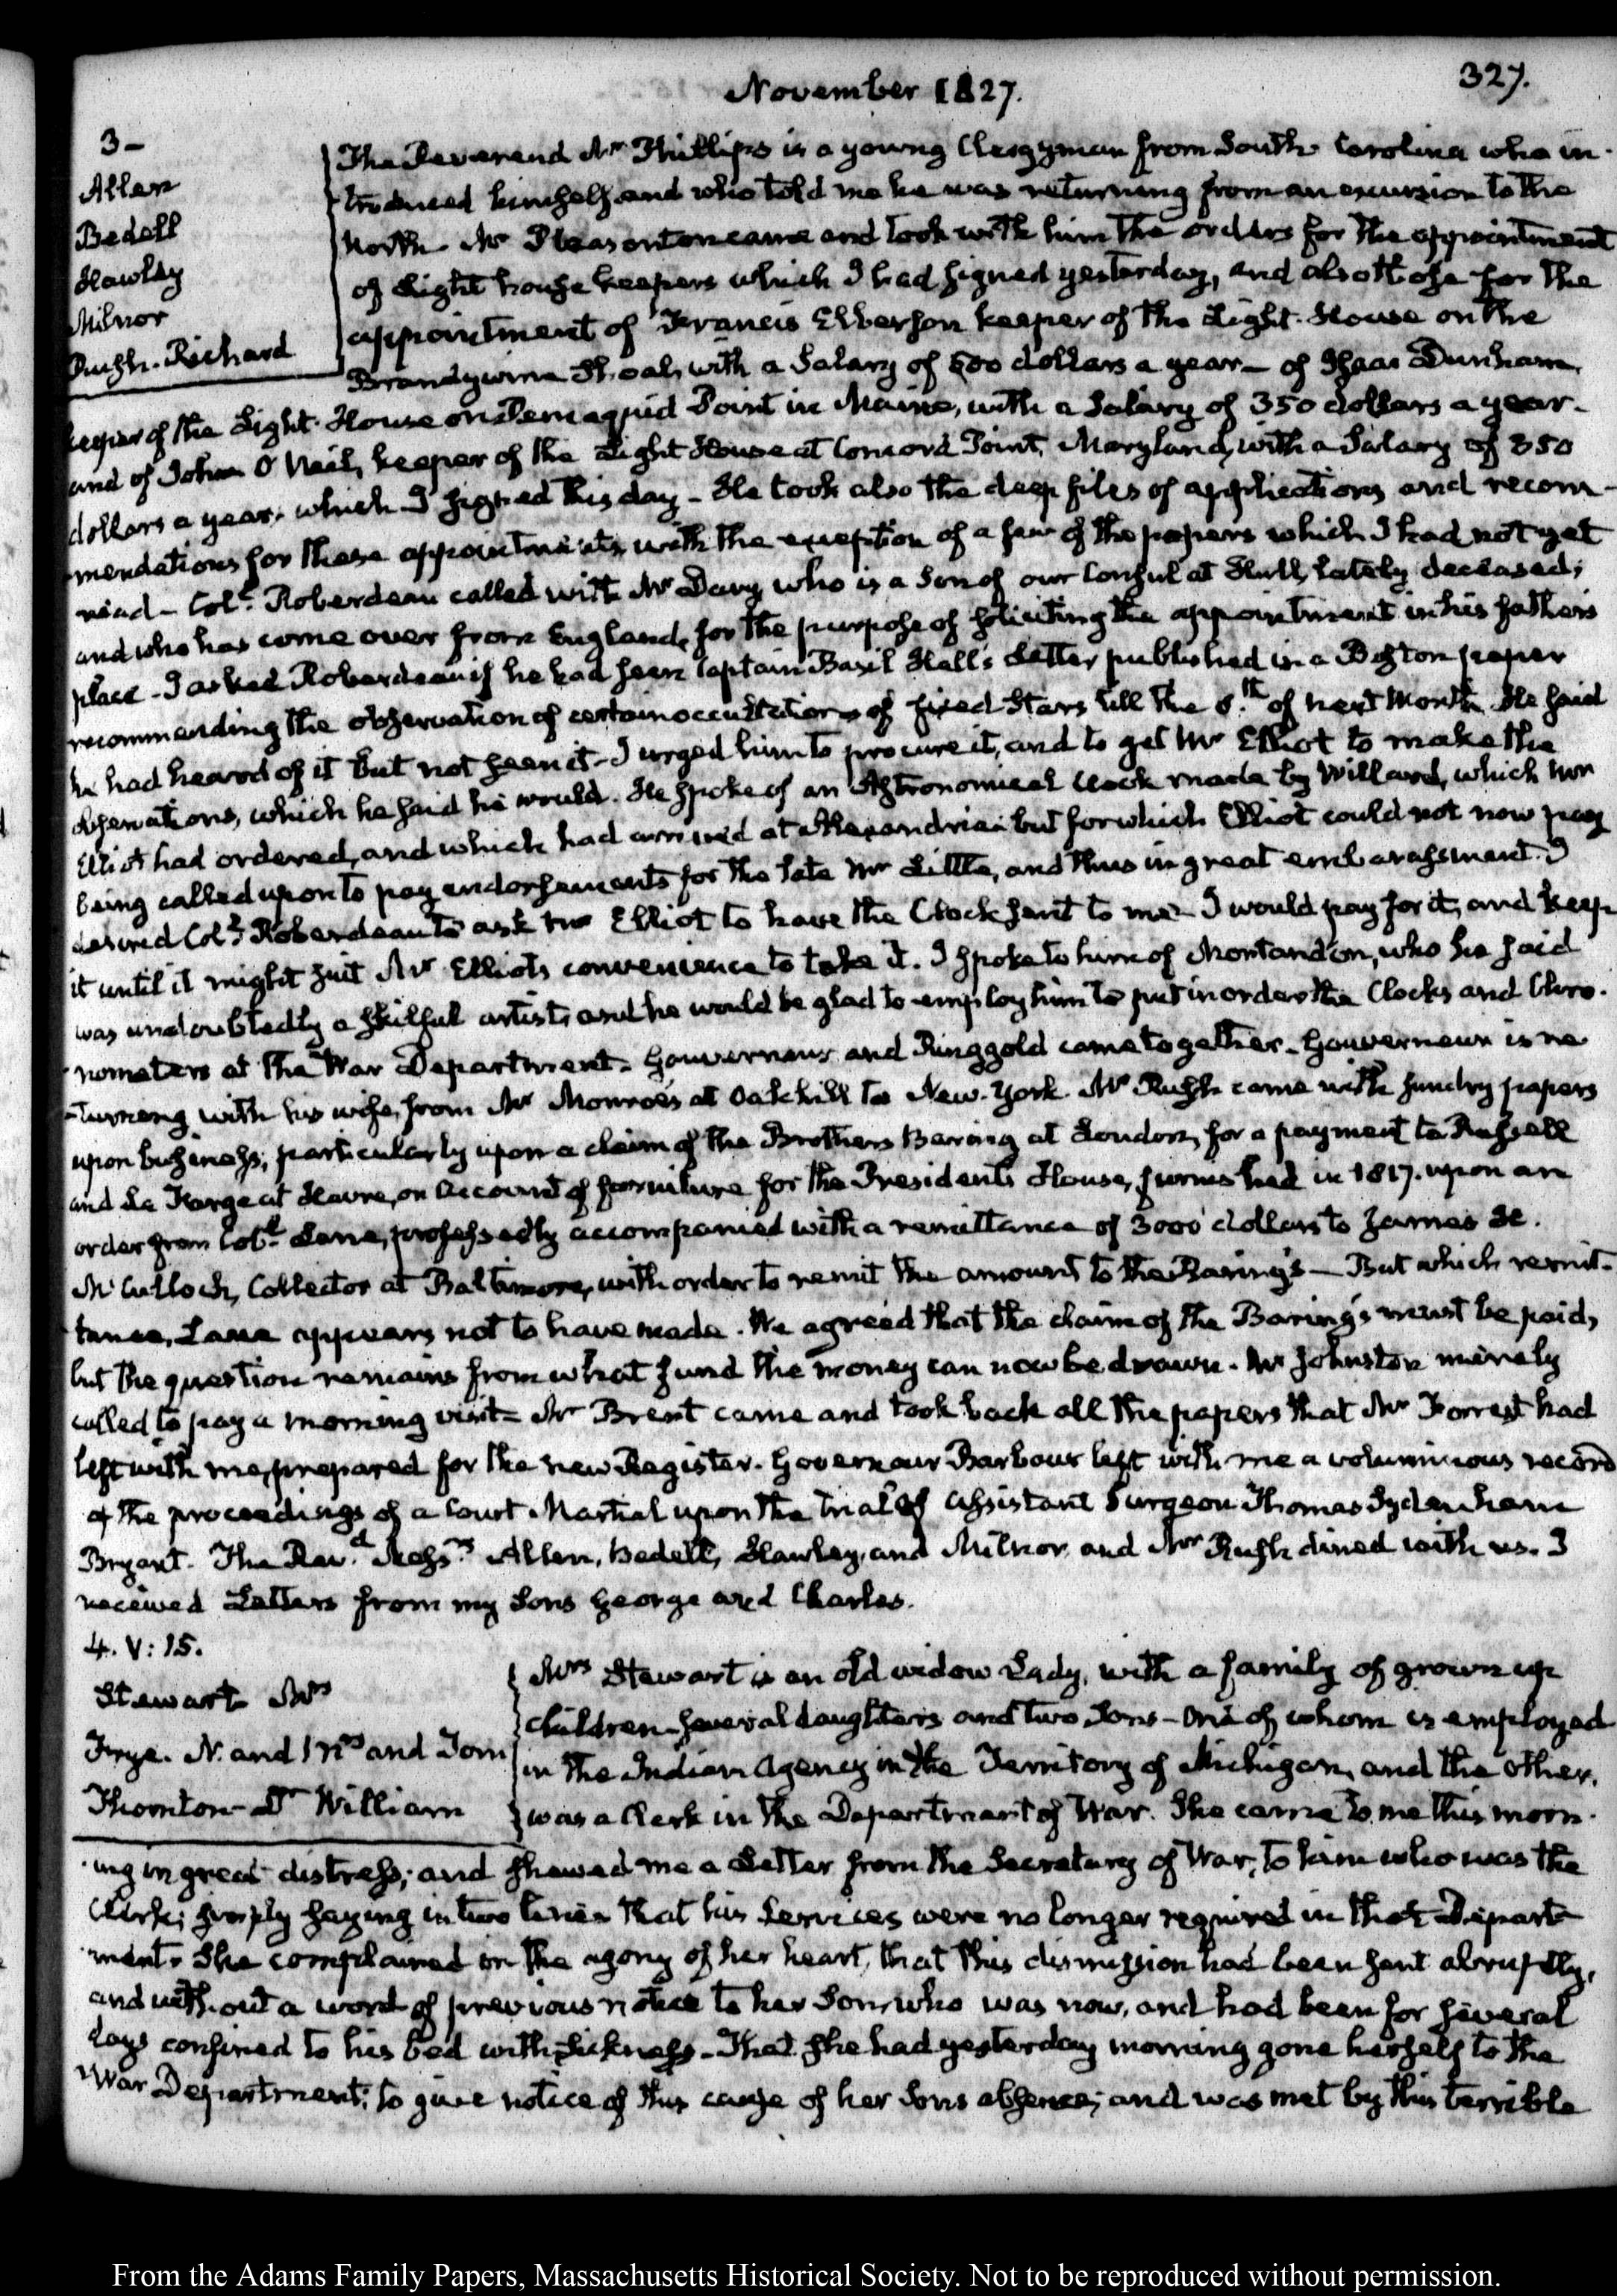 November 1827.
327.
3-
Allen
Bedell
Hawley
Milnor
Rush. Richard
The Reverend Mr Phillips is a young Clergyman from South Carolina who in-
troduced himself and who told me he was returning from an excursion to the
North. Mr Pleasonton came and took with him the orders for the appointment
of Light house keepers which I had signed yesterday, and also those for the
appointment of Francis Elberson keeper of the Light-House on the
Brandywine Shoal, with a Salary of 500 dollars a year- of Isaac Dunham,
keeper of the Light-House on Pemaquid Point in Maine, with a Salary of 350 dollars a year-
and of John O'Neil, keeper of the Light House at Concord Point, Maryland, with a Salary of 350
dollars a year, which I signed this day- He took also the deep files of applications and recom-
mendations for these appointments, with the exception of a few of the papers which I had not yet
read- Coll. Roberdeau called with Mr Davy who is a Son of our Consul at Hull, lately deceased;
and who has come over from England, for the purpose of soliciting the appointment in his father's
place- I asked Roberdeau if he had seen Captain Basil Hall's Letter published in a Boston paper
recommending the observation of certain occultations of fixed Stars till the 8.th of next Month. He said
he had heard of it but not seen it- I urged him to procure it, and to get Mr Elliot to make the
observations, which he said he would. He spoke of an Astronomical Clock made by Willard, which Mr
Elliot had ordered, and which had arrived at Alexandria: but for which Elliot could not now pay
being called upon to pay endorsements for the late Mr Little, and thus in great embarassment. I
desired Coll. Roberdeau to ask Mr Elliot to have the Clock sent to me- I would pay for it, and keep
it until it might suit Mr Elliot's convenience to take it. I spoke to him of Montandon, who he said
was undoubtedly a skilful artist, and he would be glad to employ him to put in order the Clocks and Chro-
nometers at the War Department- Gouverneur and Ringgold came together- Gouverneur is re-
turning with his wife, from Mr Monroe's at Oakhill to New-York. Mr Rush came with sundry papers
upon business; particularly upon a claim of the Brothers Baring at London, for a payment to Russell
and La Farge at Havre, on account of furniture for the President's House, furnished in 1817. upon an
order from Coll. Lane, professedly accompanied with a remittance of 3000 dollars to James H.
McCulloch, Collector at Baltimore, with order to remit the amount to the Barings- But which remit-
tance, Lane appears not to have made. We agreed that the claim of the Baring's must be paid,
but the question remains from what fund the money can now be drawn. Mr Johnston merely
called to pay a morning visit- Mr Brent came and took back all the papers that Mr Forrest had
left with me, prepared for the new Register. Governour Barbour left with me a voluminous record
of the proceedings of a Court-Martial upon the trial of Assistant Surgeon Thomas Sydenham
Bryant. The Rev.d Mess.rs Allen, Bedell, Hawley, and Milnor, and Mr Rush dined with us. I
received Letters from my Sons George and Charles.
4. V: 15.
Stewart Mrs
Frye. N. and Mrs and Tom
Thornton- Dr William
Mrs Stewart is an old widow Lady, with a family of grown up
children- several daughters and two Sons- One of whom is employed
in the Indian Agency in the Territory of Michigan, and the other,
was a Clerk in the Department of War. She came to me this morn-
ing in great distress; and shewed me a Letter from the Secretary of War, to him who was the
Clerk; simply saying in two lines that his services were no longer required in that Depart-
ment. She complained in the agony of her heart, that this dismission had been sent abruptly,
and without a word of previous notice to her Son, who was now, and had been for several
days confined to his bed with sickness- That she had yesterday morning gone herself to the
War Department; to give notice of this cause of her Sons absence; and was met by this terrible
From the Adams Family Papers, Massachusetts Historical Society. Not to be reproduced without permission.